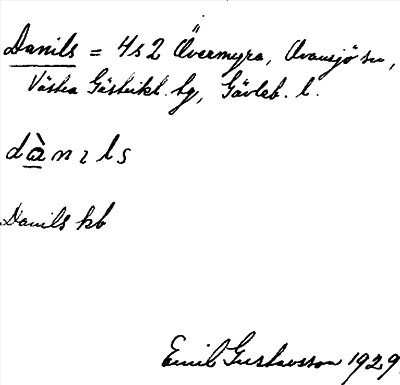 Danils = 4s2 Övermyra, Ovansjö sn,
Västra Gästrikl. hg, Gävleb. l.
dànıls
Danils kb
Emil Gustavsson 1929.